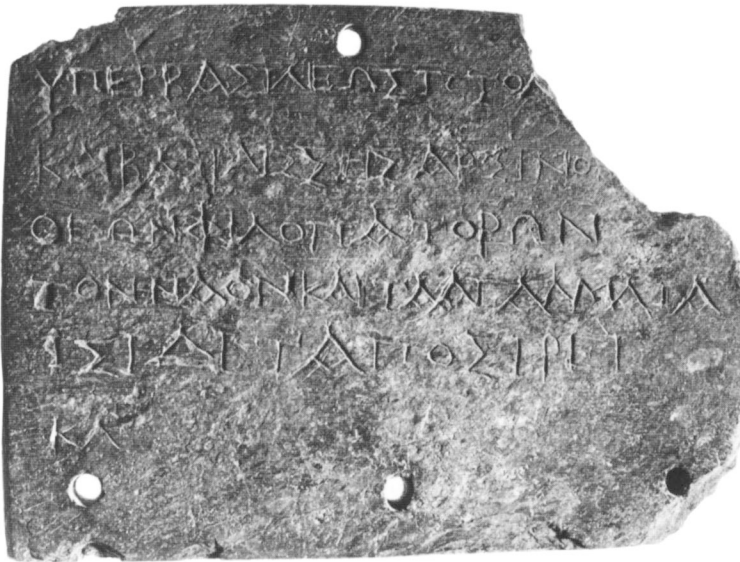 ΥΠΕΡΒΑΣΙΛΕΩΣΠΤΟΛ
ΚΑΒΑΣΙΛΙΣΣΗΣΑΡΣΙΝΟ
ΘΕΩΝΦΙΛΟΠΑΤΟΡΩΝ
ΤΟΝΝΑΟΝΚΑΙΤΑΑΓΑΛΜΑΤΑ
ΙΣΙΔΙΤΑΠΟΣΙΡΕΙ
ΚΑ